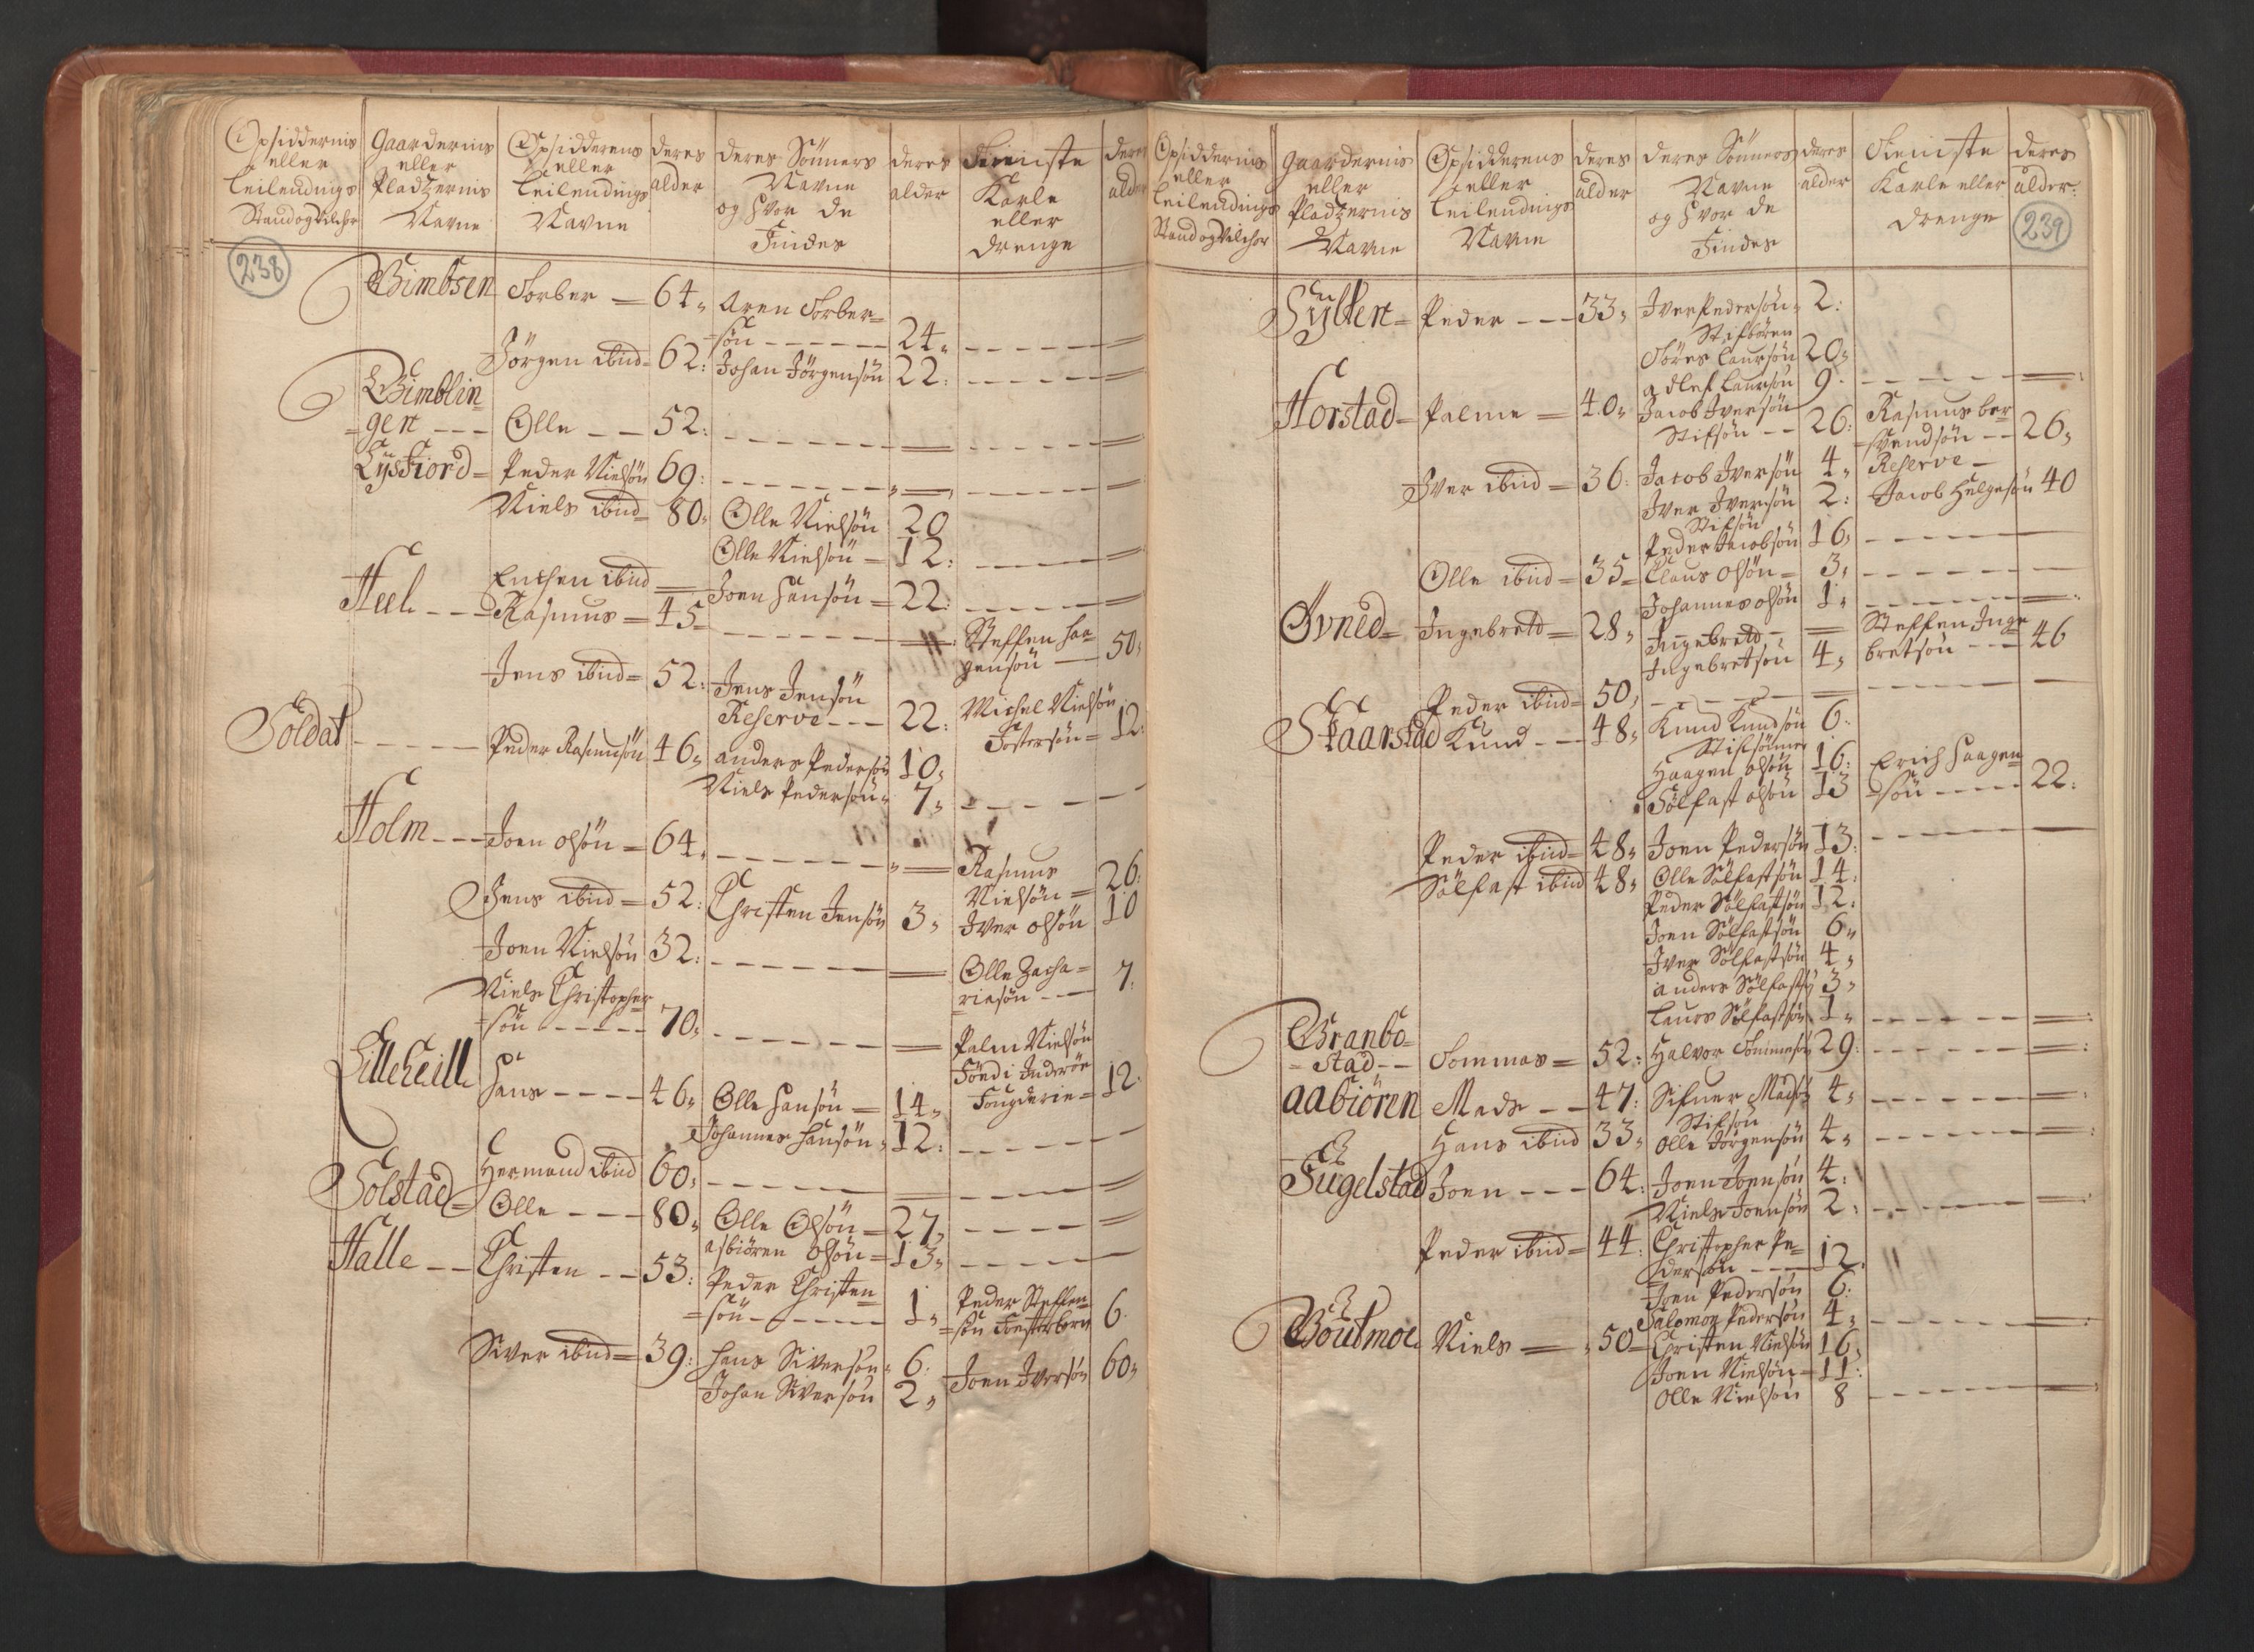 Opsiddernis eller Leilendings Stand og Vilchor
Gaardernis eller Pladzernis Navne
Opsidderens eller Leilendings Navne
deres alder
deres Sönners Navne og Hvor de Findes
deres alder
Tieniste Karle eller drenge
deres alder
238
Gimbsen Torber = 64, Aren Torber=
sön - - - 24,
Jörgen ibid= 62: Johan Jörgensön 22:
Gimblin=
=gen - - - Olle - - 52:
Lysfiord= Peder Nielsön 69:
Niels ibid= 80, Olle Nielsön 20
Olle Nielsön - 12:
Enchen ibid = Joen Hansön = 22:
Heel - - Rasmus = 45 - Steffen Haa=
gensön — 50,
Jens ibid= 52: Jens Jensön
Reserve - - - 22: Michel Nielsön
Fostersön = 12:
Soldat - - - Peder Rasmusön 46, anders Pedersön 10,
Niels Pedersön, 7,
Holm - - - Joen olsön = 64, Rasmus
Nielsön = 26:
Jens ibid = 52: Christen Jensön 3, Iver olsön 10
Joen Nielsön 32: Olle Zacha=
riesön - - - 7.
Niels Christopher
=sön - - - 70, Palm Nielsön
Född i Inderöe
Fougderie = 12.
Lille Hans - - - - 46, Olle Hansön = 14,
Johannes Hansön, 12:
Hermand ibid 60,
Solstad= Olle - - - 80, Olle Olsön = 27,
asbiören olsön = 13,
Halle - - Christen - - 53: Peder Christen=
=sön - - - 1, Peder Steffen=
=sön Fosterbern 6.
Siver ibid= 39: Hans Siversön, 6: Joen Iversön 60,
Johan Siversön 2,
Opsiddernis eller Leilendings Stand og Vilchor
Gaardernis eller Pladzernis Navne
Opsidderens eller Leilendings Navne
deres alder
deres Sönners Navne og Hvor de Findes
deres alder
Tieniste Karle eller drenge
deres alder:
239
Sylten= Peder - - - 33, Iver Pedersön, 2:
Stifbören
Töres Laursön 20,
adlef Laursön 9.
Horstad= Palme = 40, Jacob Iversön
Stifsön - - 26: Rasmus ber
=svendsön - - 26,
Iver ibid = 36: Jacob Iversön 4, Reserve -
Iver Iversön 2: Jacob Helgesön 40
Stifsön
Peder Jacobsön 16,
Olle ibid = 35= Claus olsön = 3,
Johannes olsön 1,
Øvned= Ingebrett = 28, Ingebrett -
Ingebretsön 4, Steffen Inge
bretsön - - - 46
Peder ibid= 50,
Skaarstad Knud - - 48, Knud Knudsön 6:
Stifsönner
Haagen olsön 16: Erich Haagen
Sölfast olsön 13 =sön - - - - 22:
Peder ibid= 48, Joen Pedersön 13:
Sölfast ibid 48, Olle Sölfastsön 14:
Peder Sölfastsön 12:
Joen Sölfastsön 6,
Iver Sölfastsön 4,
anders Sölfasts 3,
Laurs Sölfastsön 1,
Granbo=
=stad - - Tommas = 52: Halvor Tommesö 29:
aabiören Mads - - 47: Sifuer Madsö 4,
Stifsön
Hans ibid 33, Olle Jörgensön 4,
Fugelstad Joen - - - 64: Joen Joensön 4:
Niels Joensön 2:
Peder ibid= 44: Christopher Pe=
dersön - - 12.
Joen Pedersön 6:
Salomon Pedersön 4,
Boutmoe Niels = 50= Christen Nielsön 16,
Joen Nielsön = 11:
Olle Nielsön 8